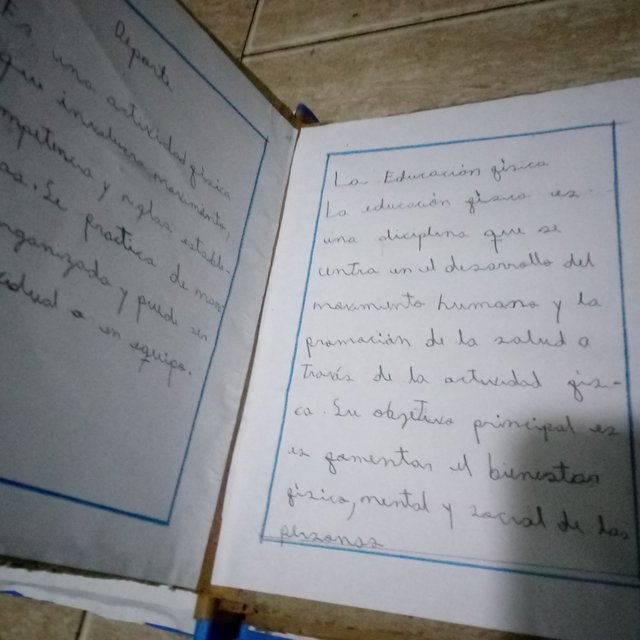 Deporte
Es una actividad física
que involucra movimiento,
competencia y reglas estable-
das. Se practica de man
organizada y puede ser
o en equipo.
La Educación física
La educación física es
una diciplina que se
centra en el desarrollo del
movimiento humano y la
promoción de la salud a
través de la actividad físi-
ca. Su objetivo principal es
es fomentar el bienestar
física, mental y social de las
personas